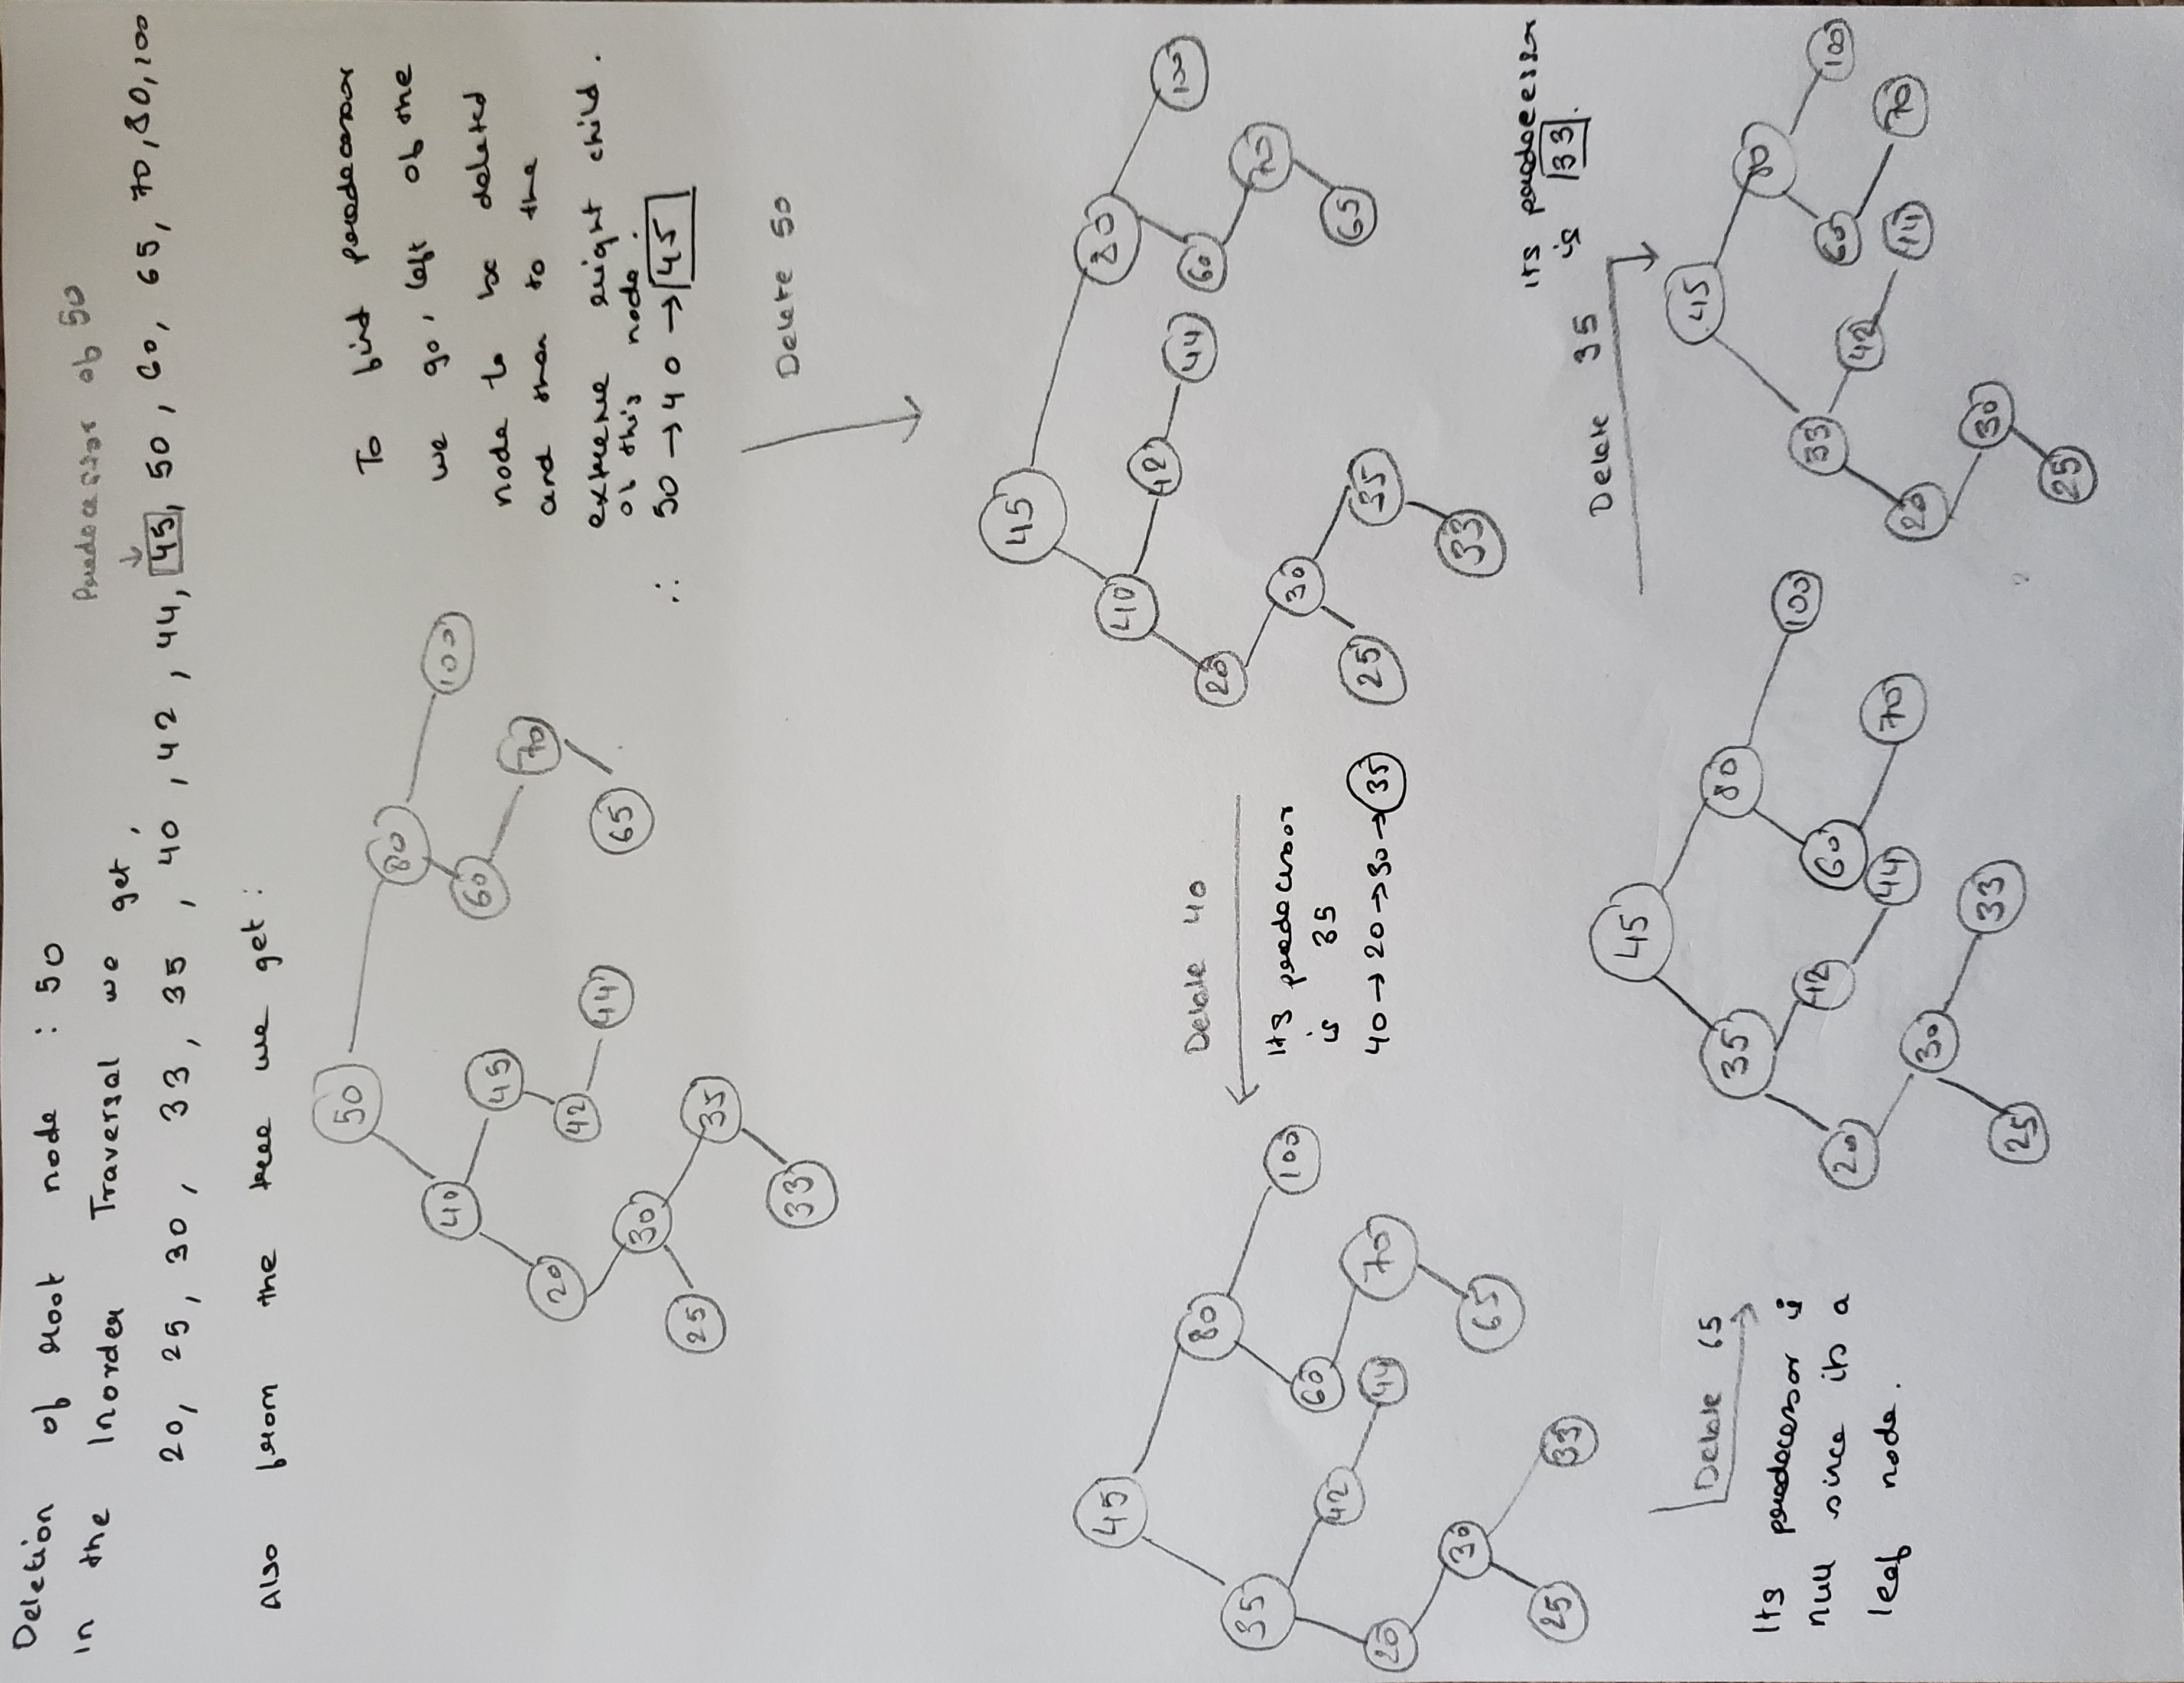 Deletion of root node : 50
in the Inorder Traversal we get,
Predecessor of 50
20, 25, 30, 33, 35, 40, 42, 44, 45, 50, 60, 65, 70, 80, 100
Also from the tree we get:
50
80
40
100
45
60
70
20
42
44
65
30
25
35
33
To find predecessor
we go, left of the
node to be deleted
and then to the
extreme right child.
of this node.
∴ 50 → 40 → 45
Delete 50
45
40
80
42
44
60
100
20
70
30
65
25
35
33
Delete 40
Its predecessor
is 35
40 → 20 → 30 → 35
45
80
35
100
60
42
20
44
70
30
65
25
33
Delete 65
Its predecessor is
null since its a
leaf node.
45
35
80
100
42
60
20
44
70
30
33
25
Its predecessor
is 33.
Delete 35
45
80
33
60
100
42
20
44
70
30
25